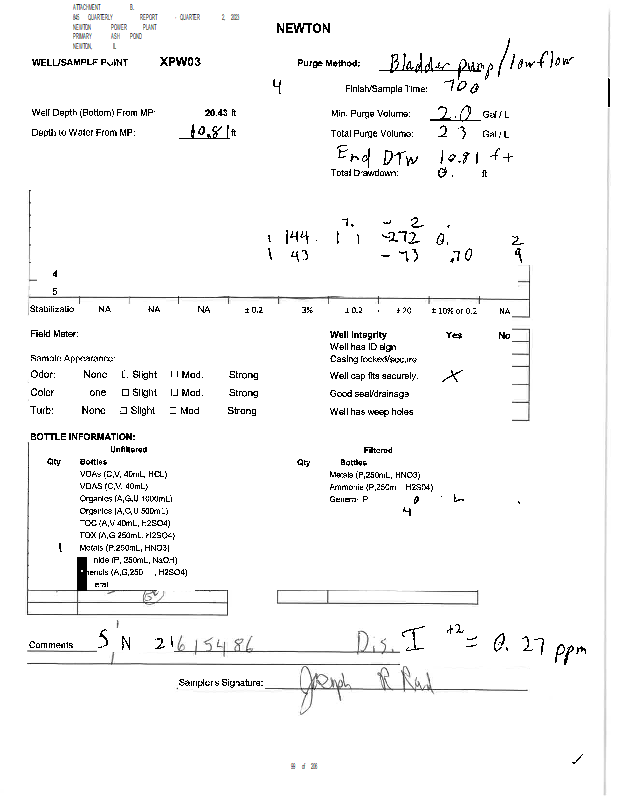 ATTACHMENT B.
845 QUARTERLY REPORT - QUARTER 2, 2023
NEWTON POWER PLANT
PRIMARY ASH POND
NEWTON, IL
NEWTON
WELL/SAMPLE POINT XPW03
Purge Method: Bladder pump/lowflow
4
Finish/Sample Time: 700
Well Depth (Bottom) From MP: 20.43 ft
Min. Purge Volume: 2.0 Gal / L
Depth to Water From MP: 10.81 ft
Total Purge Volume: 23 Gal / L
End DTW 10.81 ft
Total Drawdown: 0. ft
7. - 2 .
1 144. 1 1 -272 0. 2
1 43 - 73 .70 9
4
5
Stabilizatio NA NA NA ± 0.2 3% ± 0.2 ± 20 ± 10% or 0.2 NA
Field Meter:
Well Integrity Yes No
Well has ID sign
Sample Appearance:
Casing locked/secure
Odor: None Slight Mod. Strong
Well cap fits securely. X
Color one Slight Mod. Strong
Good seal/drainage
Turb: None Slight Mod Strong
Well has weep holes
BOTTLE INFORMATION:
Unfiltered
Filtered
Qty Bottles
Qty Bottles
VOAs (C,V, 40mL, HCL)
Metals (P,250mL, HNO3)
VOAS (C,V, 40mL)
Ammonia (P,250m H2SO4)
Organics (A,G,U 1000mL)
General P
Organics (A,G,U 500mL)
4
TOC (A,V 40mL, H2SO4)
TOX (A,G 250mL, H2SO4)
1 Metals (P,250mL, HNO3)
nide (P, 250mL, NaOH)
enols (A,G,250 , H2SO4)
eral
Comments S N 21615486 Dis. I +2 = 0.27 ppm
Sampler's Signature: Joseph R
of